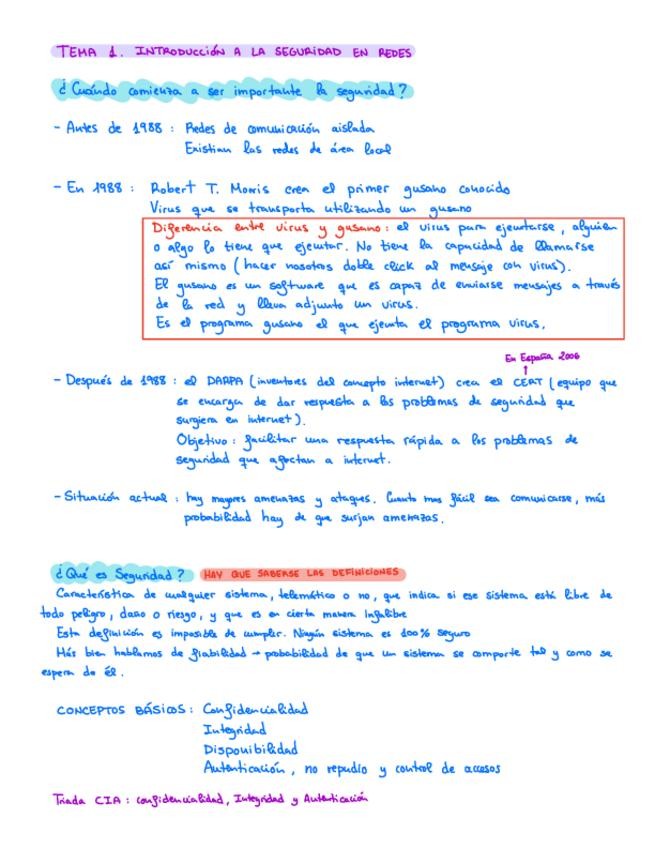 TEMA 1. INTRODUCCIÓN A LA SEGURIDAD EN REDES
¿Cuándo comienza a ser importante la seguridad?
- Antes de 1988: Redes de comunicación aislada
Existian las redes de área local
- En 1988: Robert T. Morris crea el primer gusano conocido
Virus que se transporta utilizando un gusano
Diferencia entre virus y gusano: el virus para ejecutarse, alguien
o algo lo tiene que ejecutar. No tiene la capacidad de llamarse
así mismo (hacer nosotros doble click al mensaje con virus).
El gusano es un software que es capaz de enviarse mensajes a través
de la red y lleva adjunto un virus.
Es el programa gusano el que ejecuta el programa virus.
En España 2006
↑
- Después de 1988: el DARPA (inventores del concepto internet) crea el CERT (equipo que
se encarga de dar respuesta a los problemas de seguridad que
surgiera en internet).
Objetivo: facilitar una respuesta rápida a los problemas de
seguridad que afectan a internet.
- Situación actual: hay mayores amenazas y ataques. Cuanto mas fácil sea comunicarse, más
probabilidad hay de que surjan amenazas.
¿Qué es Seguridad? HAY QUE SABERSE LAS DEFINICIONES
Característica de cualquier sistema, telemático o no, que indica si ese sistema está libre de
todo peligro, daño o riesgo, y que es en cierta manera infalible
Esta definición es imposible de cumplir. Ningún sistema es 100% seguro
Más bien hablamos de fiabilidad → probabilidad de que un sistema se comporte tal y como se
espera de él.
CONCEPTOS BÁSICOS: Confidencialidad
Integridad
Disponibilidad
Autenticación, no repudio y control de accesos
Triada CIA: confidencialidad, Integridad y Autenticación